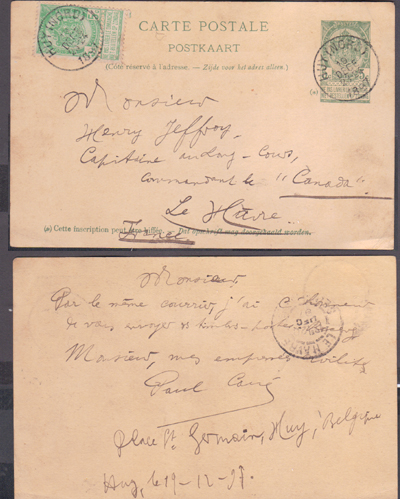 CARTE POSTALE
POSTKAART
(Côté réservé à l'adresse. — Zijde voor het adres alleen.)
HUY (NORD)
DEC
1897
HUY (NORD)
DEC
1897
Monsieur
Henry Jeffroy,
Capitaine au long-cours,
Commandant le "Canada"
Le Hâvre.
(a) Cette inscription peut être biffée. — Dit opschrift mag doorgehaald worden.
France
Monsieur
Par le même courrier, j'ai l'honneur
de vous envoyer timbres-poste
Monsieur, mes civilités
Paul
LE HAVRE
DEC
Place St. Germain, Huy, Belgique
Huy, le 19-12-97.